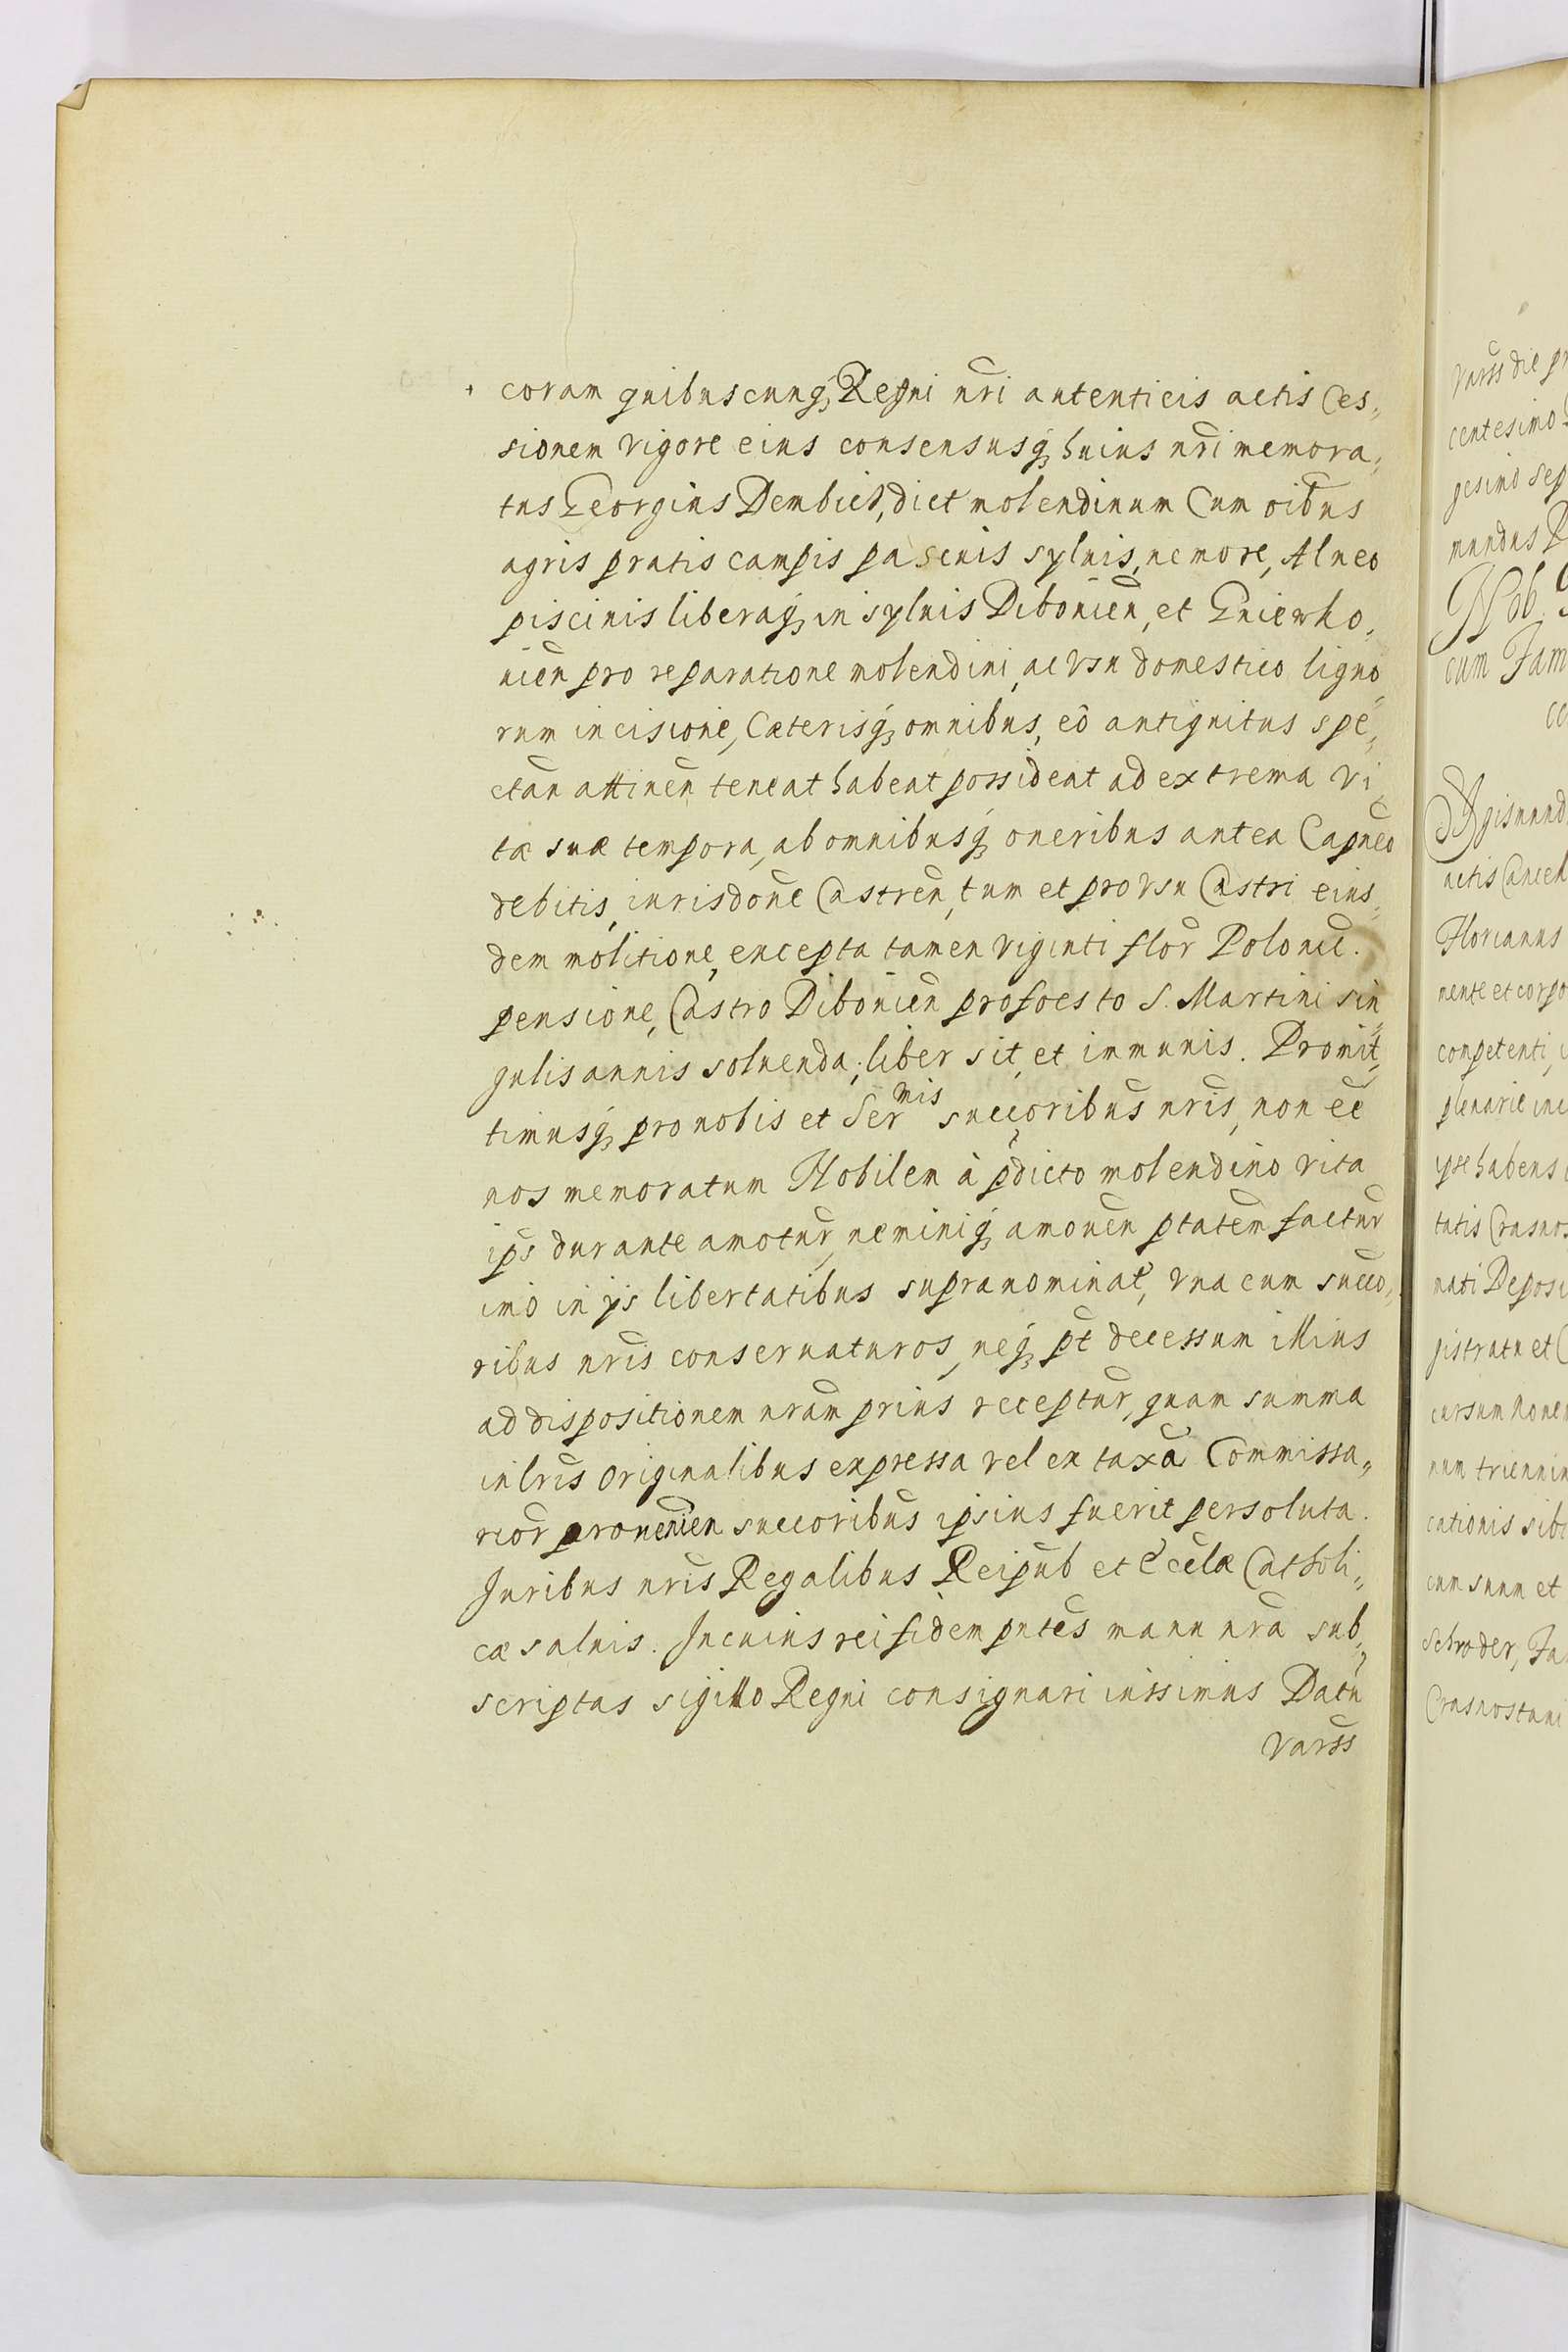 coram quibuscunq; Regni nr̃i autenticis actis Ces„
sionem vigore eius consensusq; huius nr̃i memora„
tus Georgius Dembicł, dict molendinum cum oĩbus
agris pratis campis pascuis syluis, nemore, Alneo
piscinis liberaq; in syluis Dibouien̄, et Gniewko„
uien̄ pro reparatione molendini, ac vsu domestico ligno„
rum incisione, Cæterisq; omnibus, eò antiquitus spe„
ctan̄ attinen̄ teneat habeat possideat ad extrema vi„
tæ suæ tempora, ab omnibusq; oneribus antea Capneo
debitis, iurisdõne Castren̄, tum et pro vsu Castri eius„
dem molitione, excepta tamen viginti flor̄ Polonic̄.
pensione, Castro Dibouien̄ pro foesto S. Martini sin„
gulis annis soluenda; liber sit, et immunis. Promit„
timusq; pro nobis et Ser nis succ̨oribus nr̃is, non eē
nos memoratum Nobilem à p̃dicto molendino vita
ip̃s durante amotur̄, neminiq; amouen̄ p̃tatem factur̄
imò in ijs libertatibus supranominat̃, vna cum succo„
ribus nr̃is conseruaturos, neq; p̃t decessum illius
ad dispositionem nr̃am prius receptur̄, quam summa
in lr̃is originalibus expressa vel ex taxa Commissa„
rior̄ prouenien̄ succoribus ipsius fuerit persoluta.
Juribus nr̃is Regalibus Reipub̄ et Eccl̃æ Catholi„
cæ saluis. In cuius rei fidem pñtes manu nr̃a sub„
scriptas sigillo Regni consignari iussimus Datū
Varss̄
Varss̄ die
centesimo
gesimo sep
mundus
Nob.
cum Fam
actis Cancell
Florianus
mente et corpo
competenti,
plenarie
ipse habens
tatis Crasnos
nati Deposi
gistratu et
cursum
num trienniu
cationis sibi
cum suum et
Schroder, Fa
Crasnostaui